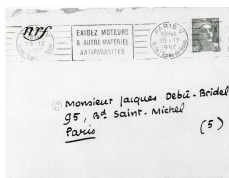 nrf
PARIS V
EXIGEZ MOTEURS
& AUTRE MATERIEL
ANTIPARASITES
PARIS V
Monsieur Jacques Debû-Bridel
95, Bd Saint-Michel
Paris (5)